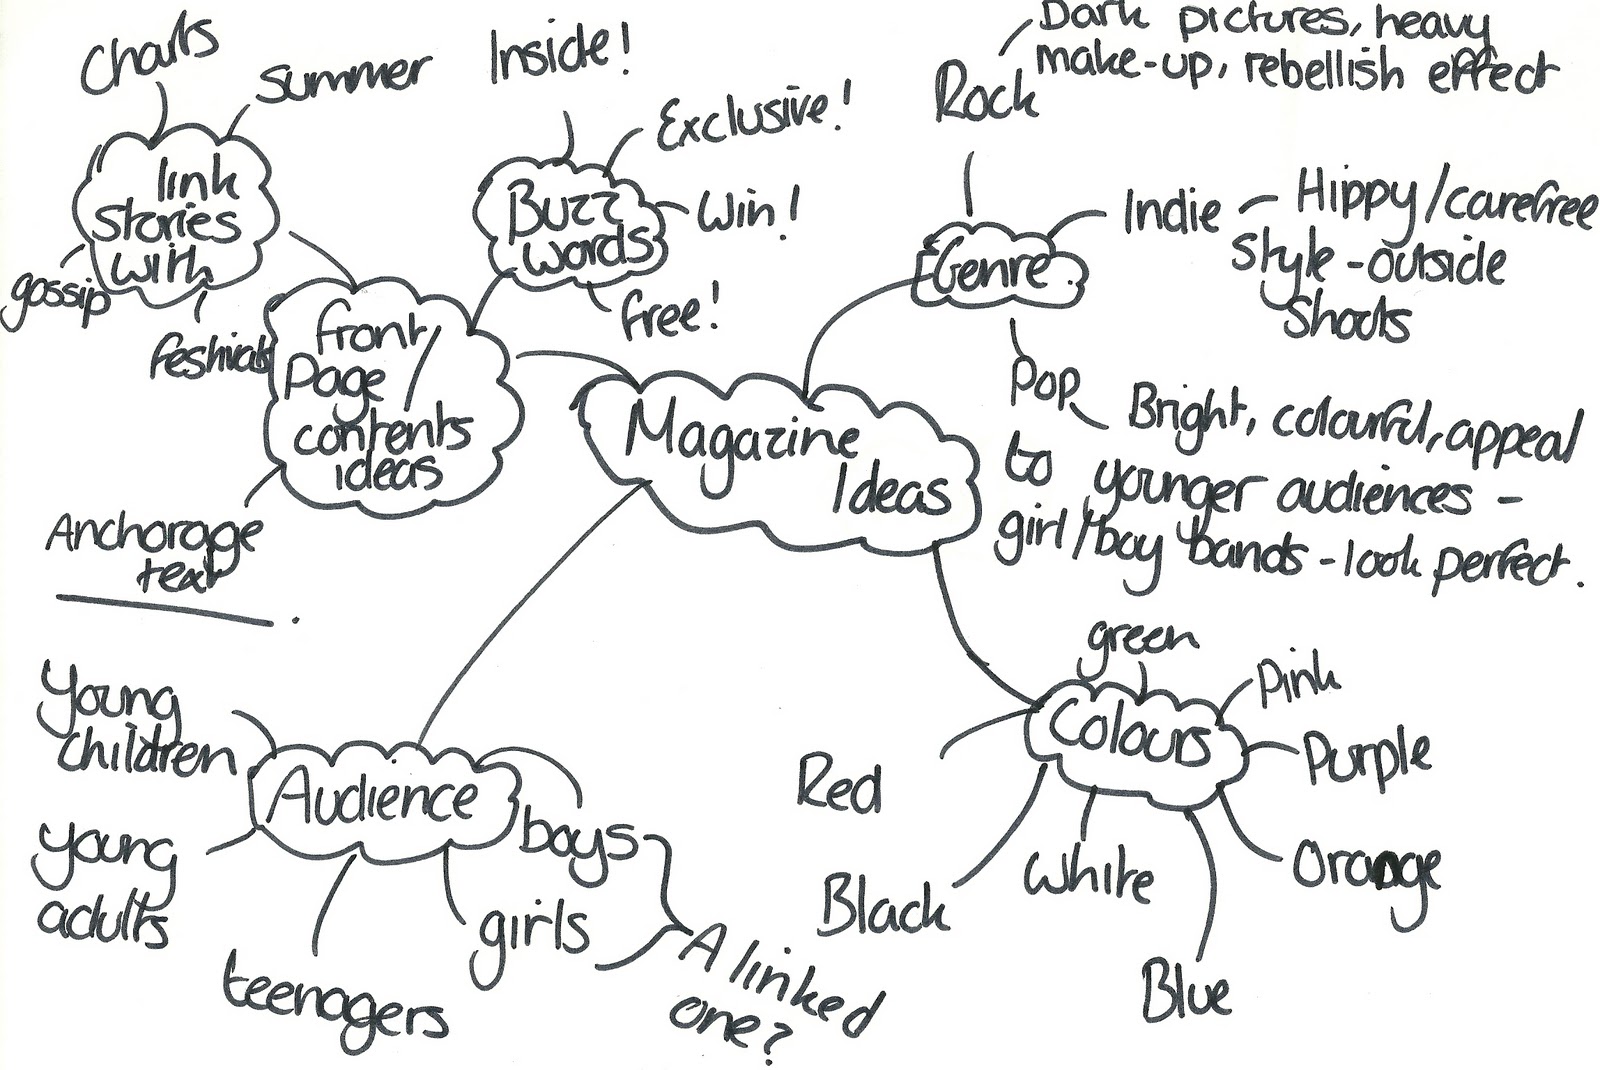 Charts
Summer
link
Stories
with
gossip
festivals
Inside!
Exclusive!
Win!
free!
Buzz
words
front/
Page
contents
ideas
Anchorage
text
Magazine
Ideas
Genre
Rock
Dark pictures, heavy
make-up, rebellish effect
Indie - Hippy/carefree
style - outside
shoots
Pop
Bright, colourful, appeal
to younger audiences -
girl/boy bands - look perfect.
Audience
Young
children
young
adults
teenagers
girls
boys
A linked
one?
Colours
green
Pink
Purple
Orange
Blue
White
Black
Red